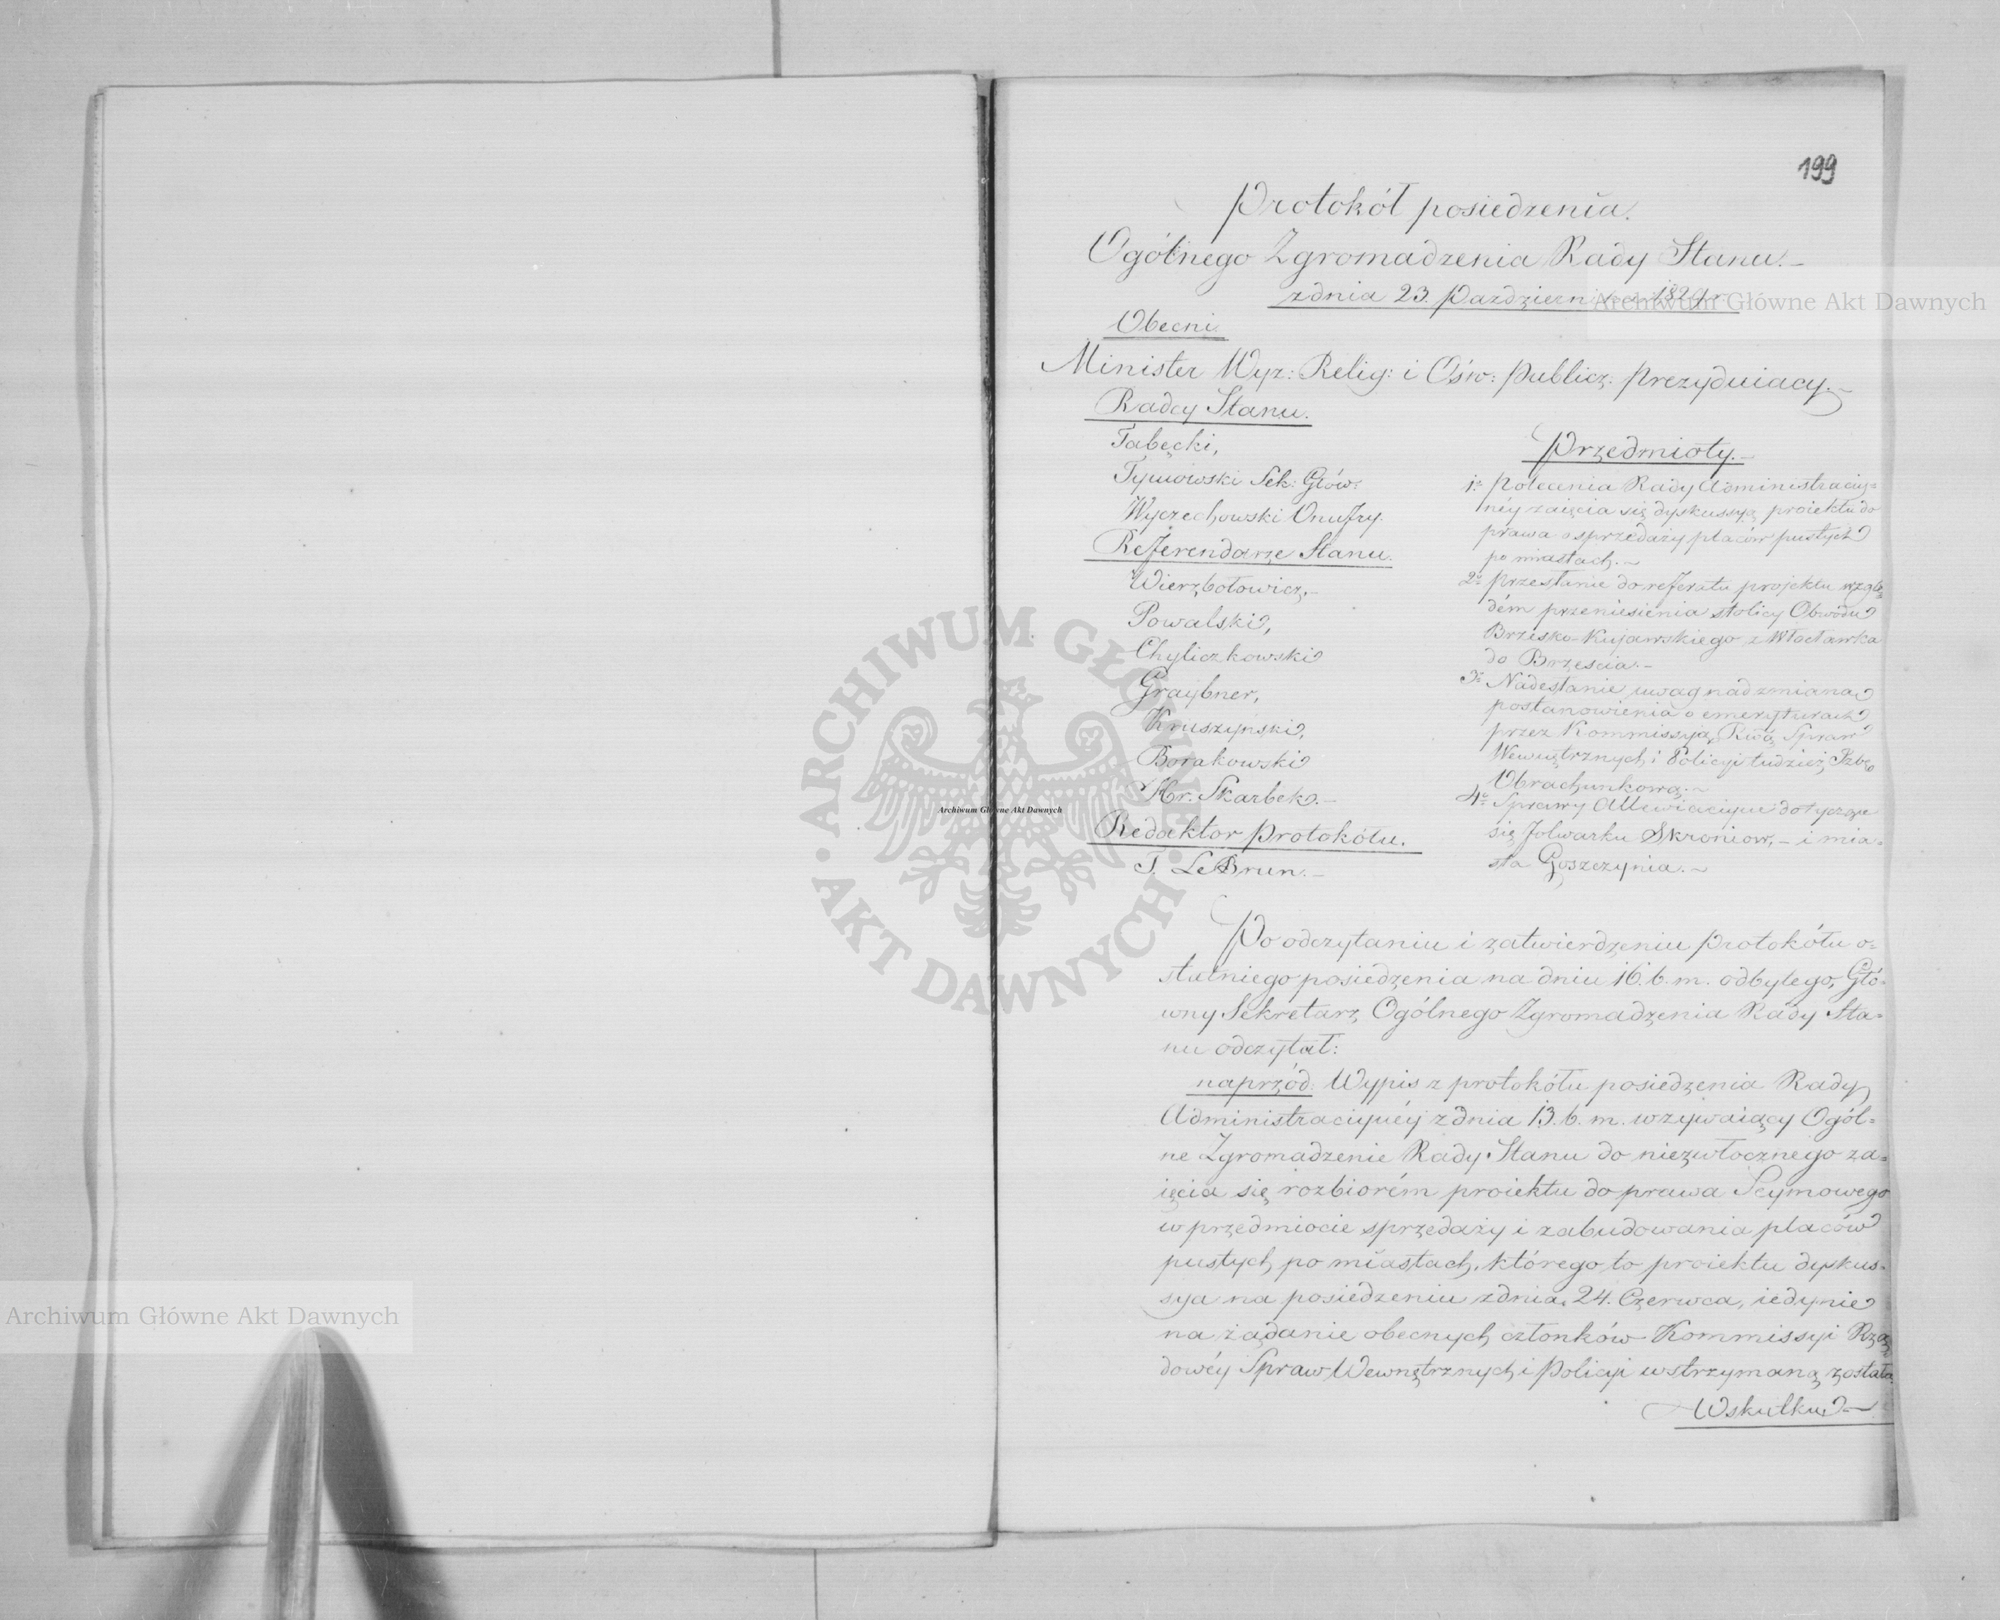 199
Protokół posiedzenia.
Ogólnego Zgromadzenia Rady Stanu.
z dnia 23. Pazdziernika
Obecni.
Minister Wyz: Relig: i Ośw: Publicz: Prezyduiacy.
Radcy Stanu.
Tabęcki,
Tymowski Sek: Głów:
Wyczechowski Onufry.
Referendarze Stanu.
Wierzbołowicz.
Powalski,
Chyliczkowski
Graybner,
Kruszyński,
Borakowski
Hr. Skarbek.
Redaktor Protokółu.
T. Le Brun.
Przedmioty.
1o Polecenia Rady Administracyi=
néy zaięcia się dyskussyą proiektu do
prawa o sprzedaży placów pustych
po miastach.
2o Przesłanie do referatu projektu wzglę=
dém przeniesienia stolicy Obwodu
Brzesko-Kujawskiego z Włocławka
do Brzescia.
3o Nadesłanie uwag nad zmianą
postanowienia o emeryturach
przez Kommissyą Rwą Spraw
Wewnętrznych i Policyi tudzież Izbę
Obrachunkową.
4o Sprawy dotyczące
się folwarku Skroniow, i mia=
sta Goszczynia.
Po odczytaniu i zatwierdzeniu protokółu o=
statniego posiedzenia na dniu 16. b. m. odbytego, Głó=
wny Sekretarz Ogólnego Zgromadzenia Rady Sta=
nu odczytał:
naprzód: Wypis z protokółu posiedzenia Rady
Administracyinéy z dnia 13. b. m. wzywaiący Ogól=
ne Zgromadzenie Rady Stanu do niezwłocznego za=
ięcia się rozbiorém proiektu do prawa Seymowego
w przedmiocie sprzedaży i zabudowania placów
pustych po miastach, którego to proiektu dyskus=
sya na posiedzeniu z dnia 24. Czerwca, iedynie
na żądanie obecnych członków Kommissyi Rzą=
dowéy Spraw Wewnętrznych i Policyi wstrzymaną została.
Wskutku
Archiwum Główne Akt Dawnych
Archiwum Główne Akt Dawnych
Archiwum Główne Akt Dawnych
ARCHIWUM GŁÓWNE
AKT DAWNYCH